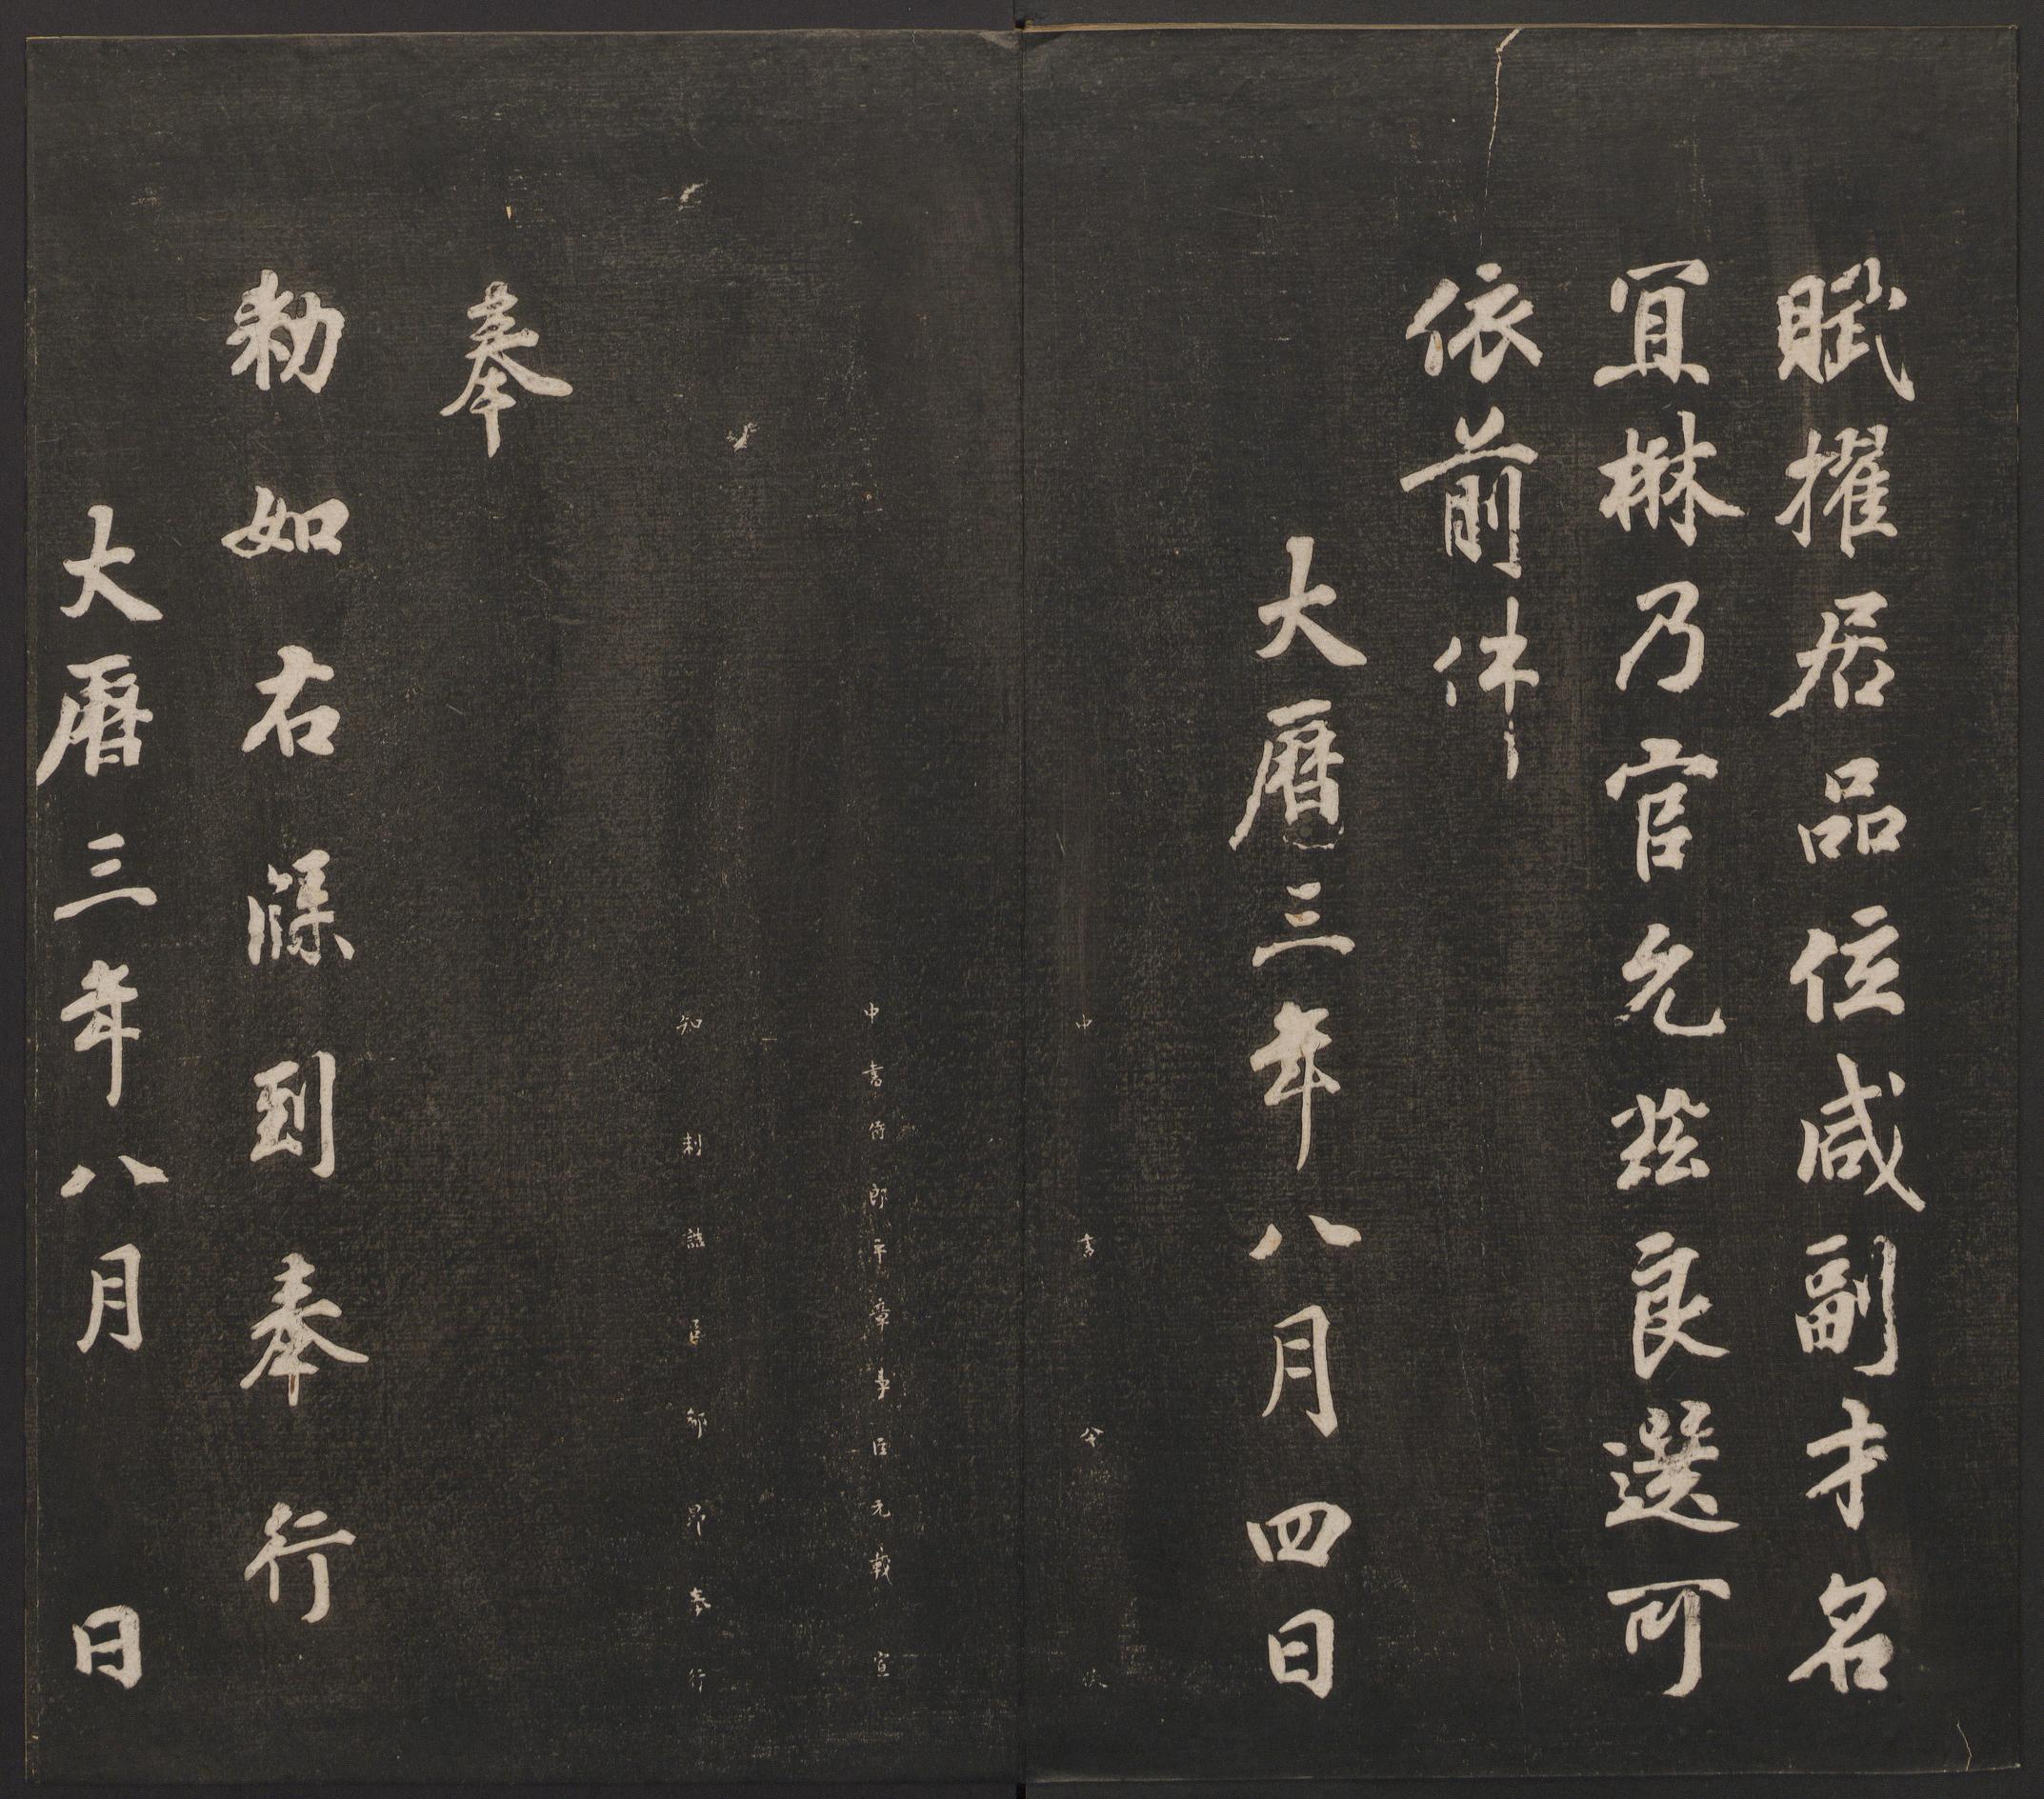 賦擢居品位咸副才名
宜楙乃官允茲良選可
依前件
大曆三年八月四日
中書令使
中書侍郎平章事臣元載宣
知制誥臣郗昂奉行
奉
勑如右牒到奉行
大曆三年八月 日